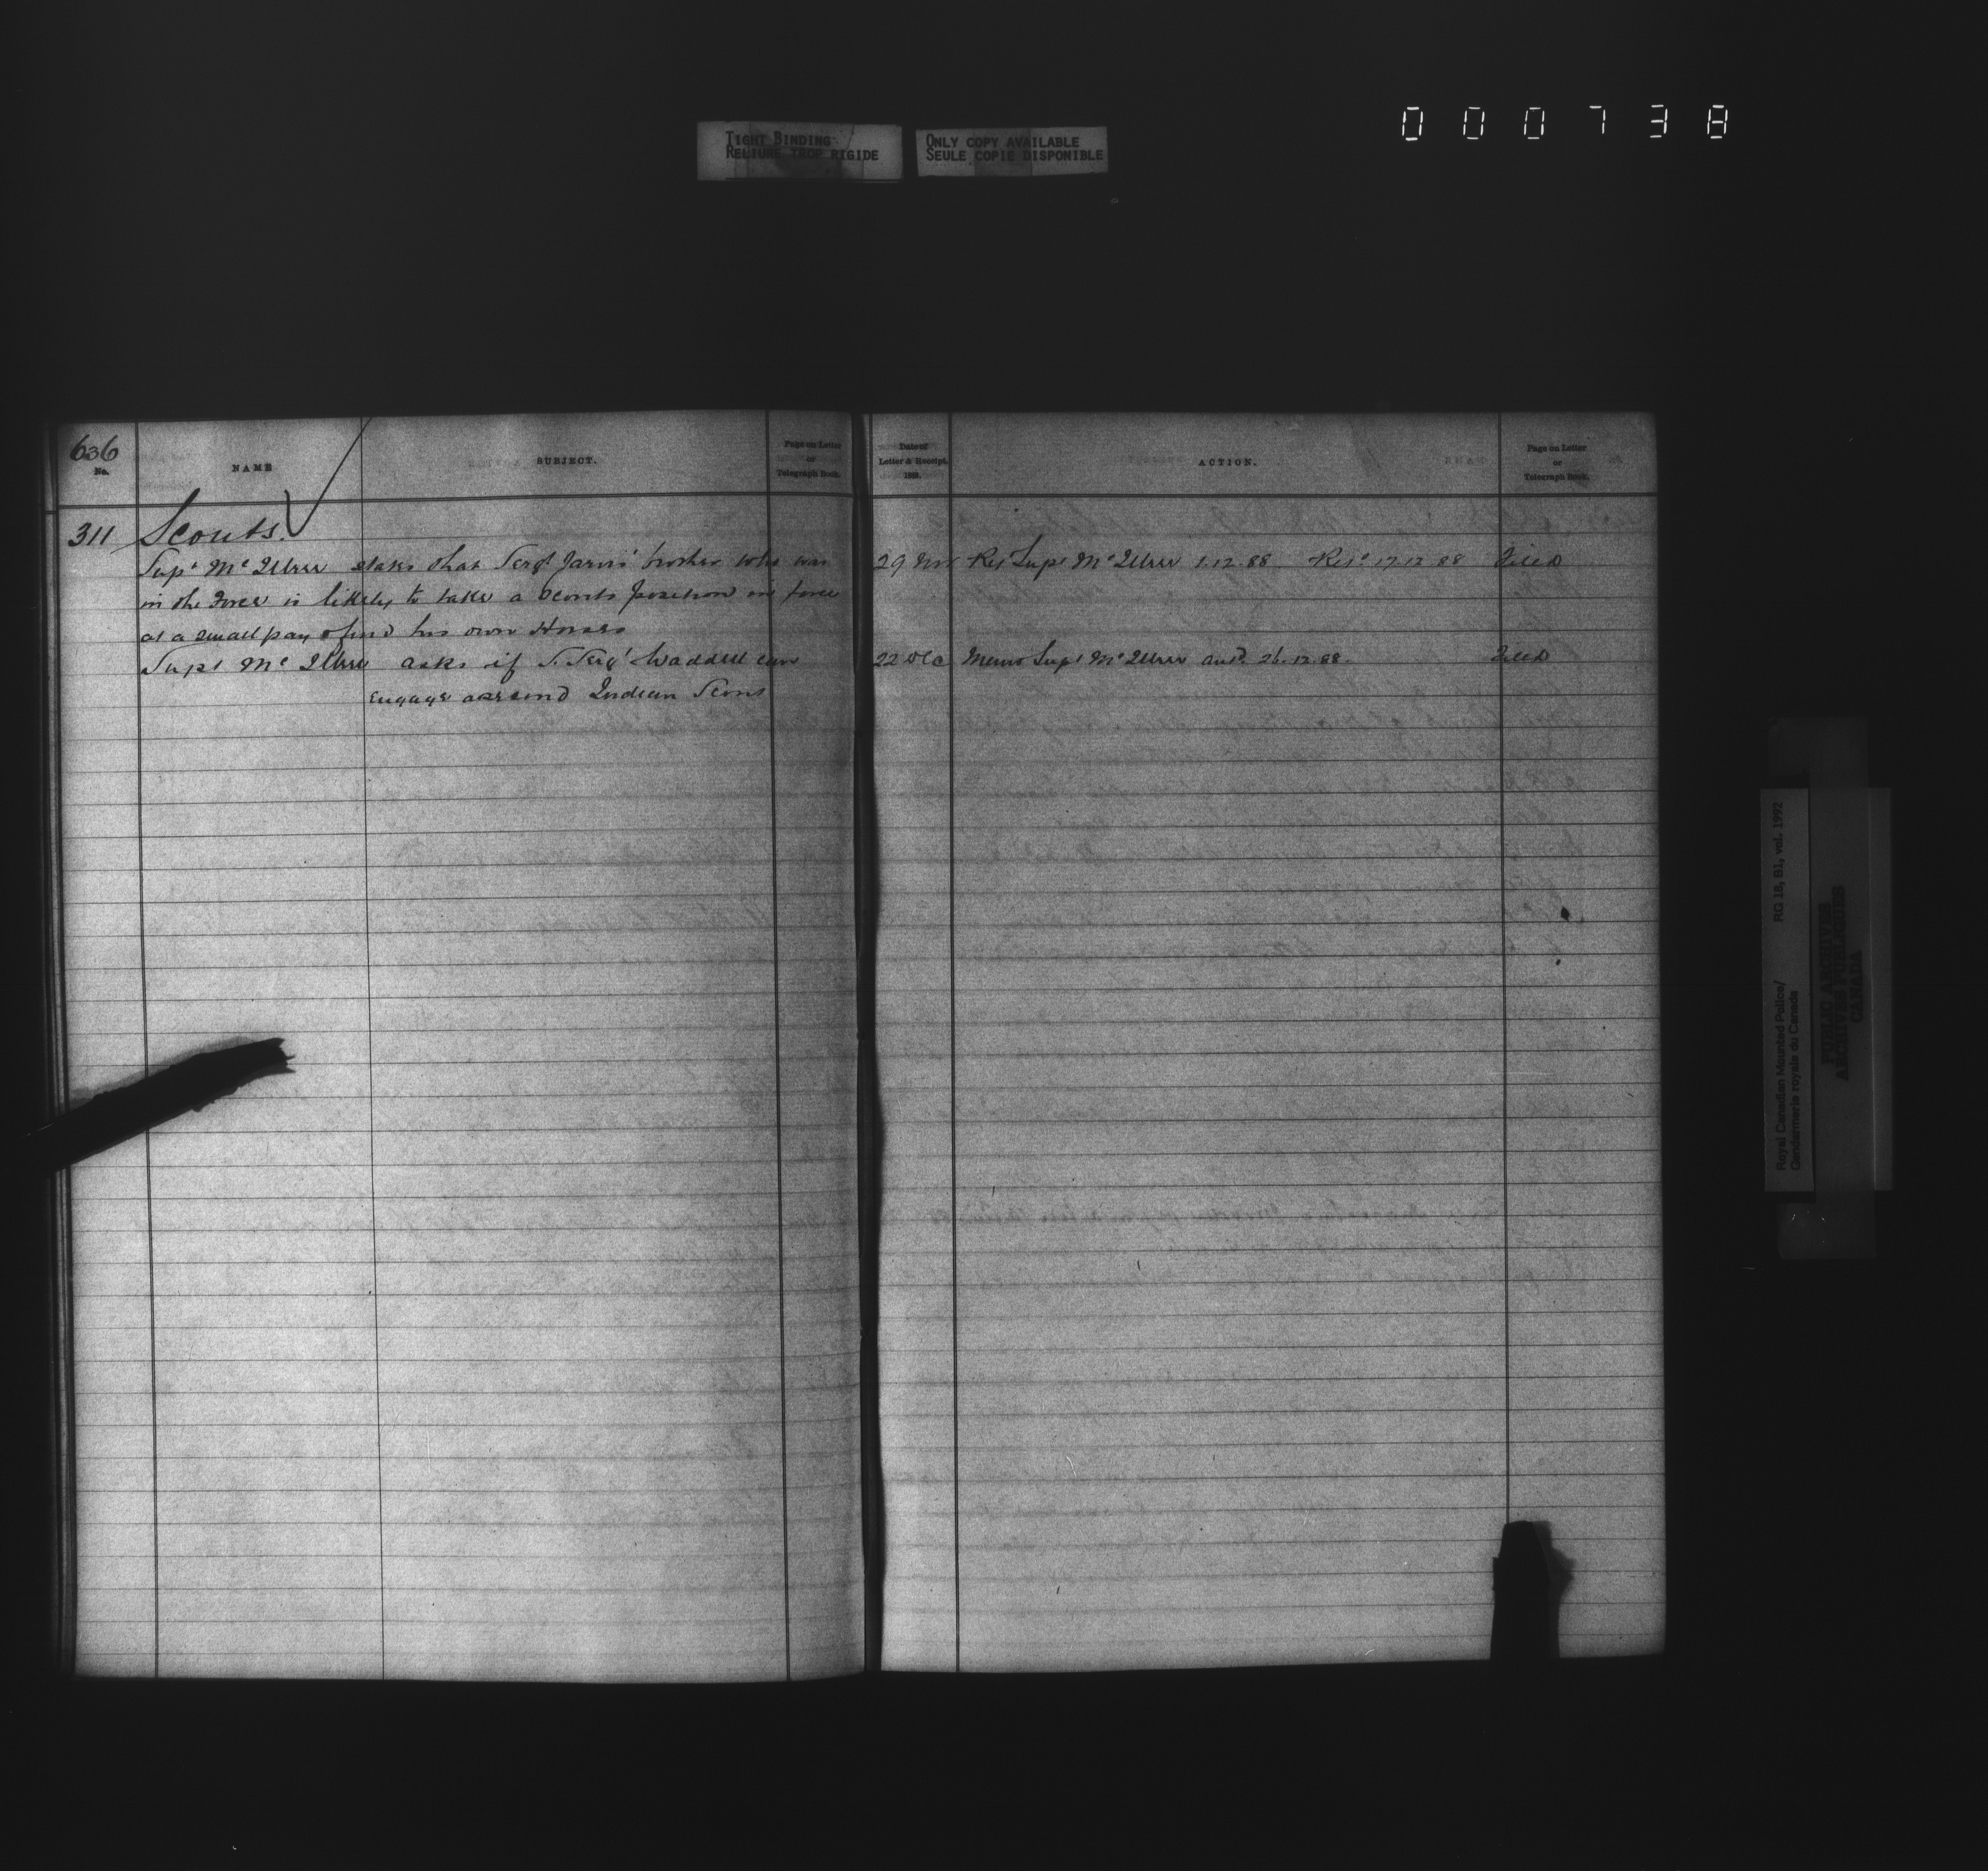 000738
TIGHT BINDING
RELIURE TROP RIGIDE
ONLY COPY AVAILABLE
SEULE COPIE DISPONIBLE
636
No. NAME SUBJECT. Page on Letter or Telegraph Book. Date of Letter & Receipt. 188 . ACTION. Page on Letter or Telegraph Book.
311 Scouts.
Supt McIllree states that Sergt Jarvis' brother who was 29 Nov Rec Supt McIllree 1.12.88 17.12.88 Filed
in the Force is likely to take a Scouts position in force
at a small pay & find his own Horses
Supt McIllree asks if S. Sergt Waddell can 22 Dec Memo Supt McIllree ansd. 26.12.88. Filed
engage a second Indian Scout
Royal Canadian Mounted Police/
Gendarmerie royale du Canada
RG 18, B1, vol. 1992
PUBLIC ARCHIVES
ARCHIVES PUBLIQUES
CANADA